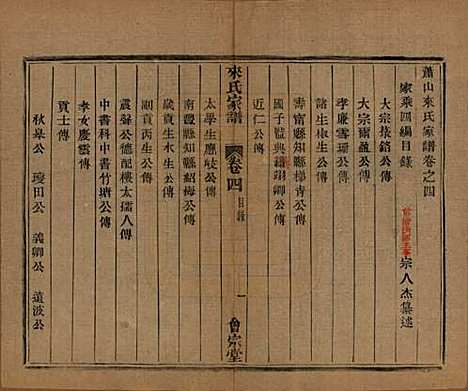 蕭山來氏家譜卷之四
家乘四編目錄
宗人杰纂述
大宗
大宗爾盈公傳
李廉雪珊公傳
諸生椒生公傳
壽州知縣梯青公傳
國子監典籍
卿公傳
近仁公傳
來氏家譜
卷四
目錄
一
會宗堂
太學生應岐公傳
南豐縣知縣紹梅公傳
歲貢生水生公傳
副貢丙生公傳
震發公德配樓太孺人傳
中書科中書竹塘公傳
孝女慶雲傳
貢士傳
秋皋公
璞田公
義卿公
蓮波公